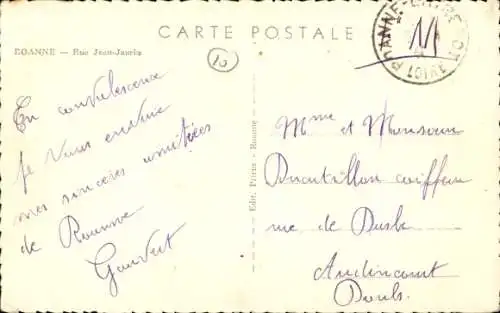 CARTE POSTALE
ROANNE — Rue Jean-Jaurès
10
M
En convalescence
je vous envoie
mes sincères amitiées
de Roanne
Gouvert
Edit. Roanne
Mme et Monsieur
coiffeur
rue de
Audincourt
Doubs.